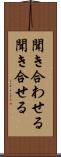 聞き合わせる
聞き合せる